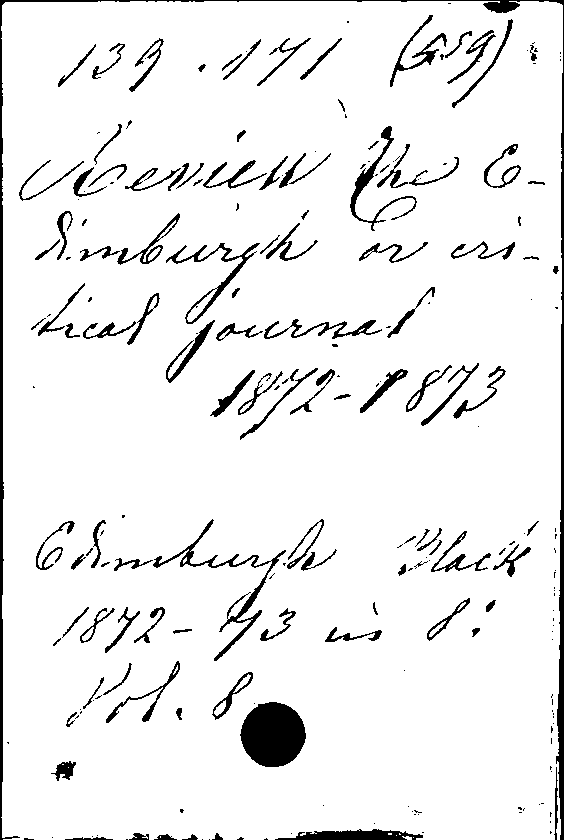 139.171 (559)
Review The E-
dimburgh or cri-
tical journal
1872-1873
Edimburgh Black
1872-73 in 8:
Vol. 8